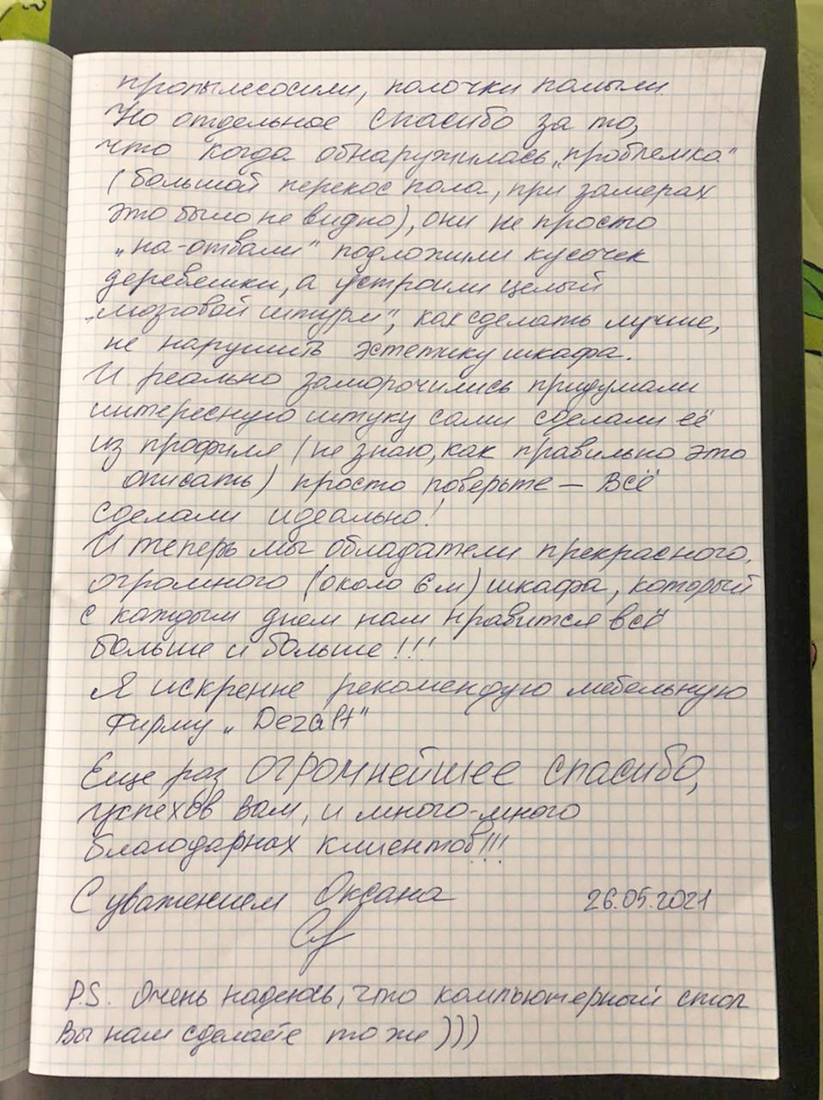 пропылесосили, полочки помыли.
Но отдельное спасибо за то,
что когда обнаружилась „проблемка"
(большой перекос пола, при замерах
это было не видно), они не просто
„на-отвали" подложили кусочек
деревяшки, а устроили целый
„мозговой штурм", как сделать лучше,
не нарушить эстетику шкафа.
И реально заморочились придумали
интересную штуку сами сделали её
из профиля (не знаю, как правильно это
описать) просто поверьте — всё
сделали идеально!
И теперь мы обладатели прекрасного,
огромного (около 6м) шкафа, который
с каждым днем нам нравится всё
больше и больше!!!
Я искренне рекомендую мебельную
фирму „Dezalt"
Еще раз огромнейшее спасибо,
успехов вам, и много-много
благодарнах клиентов!!!
С уважением Оксана 26.05.2021
P.S. Очень надеюсь, что компьютерный стол
Вы нам сделаете тоже)))